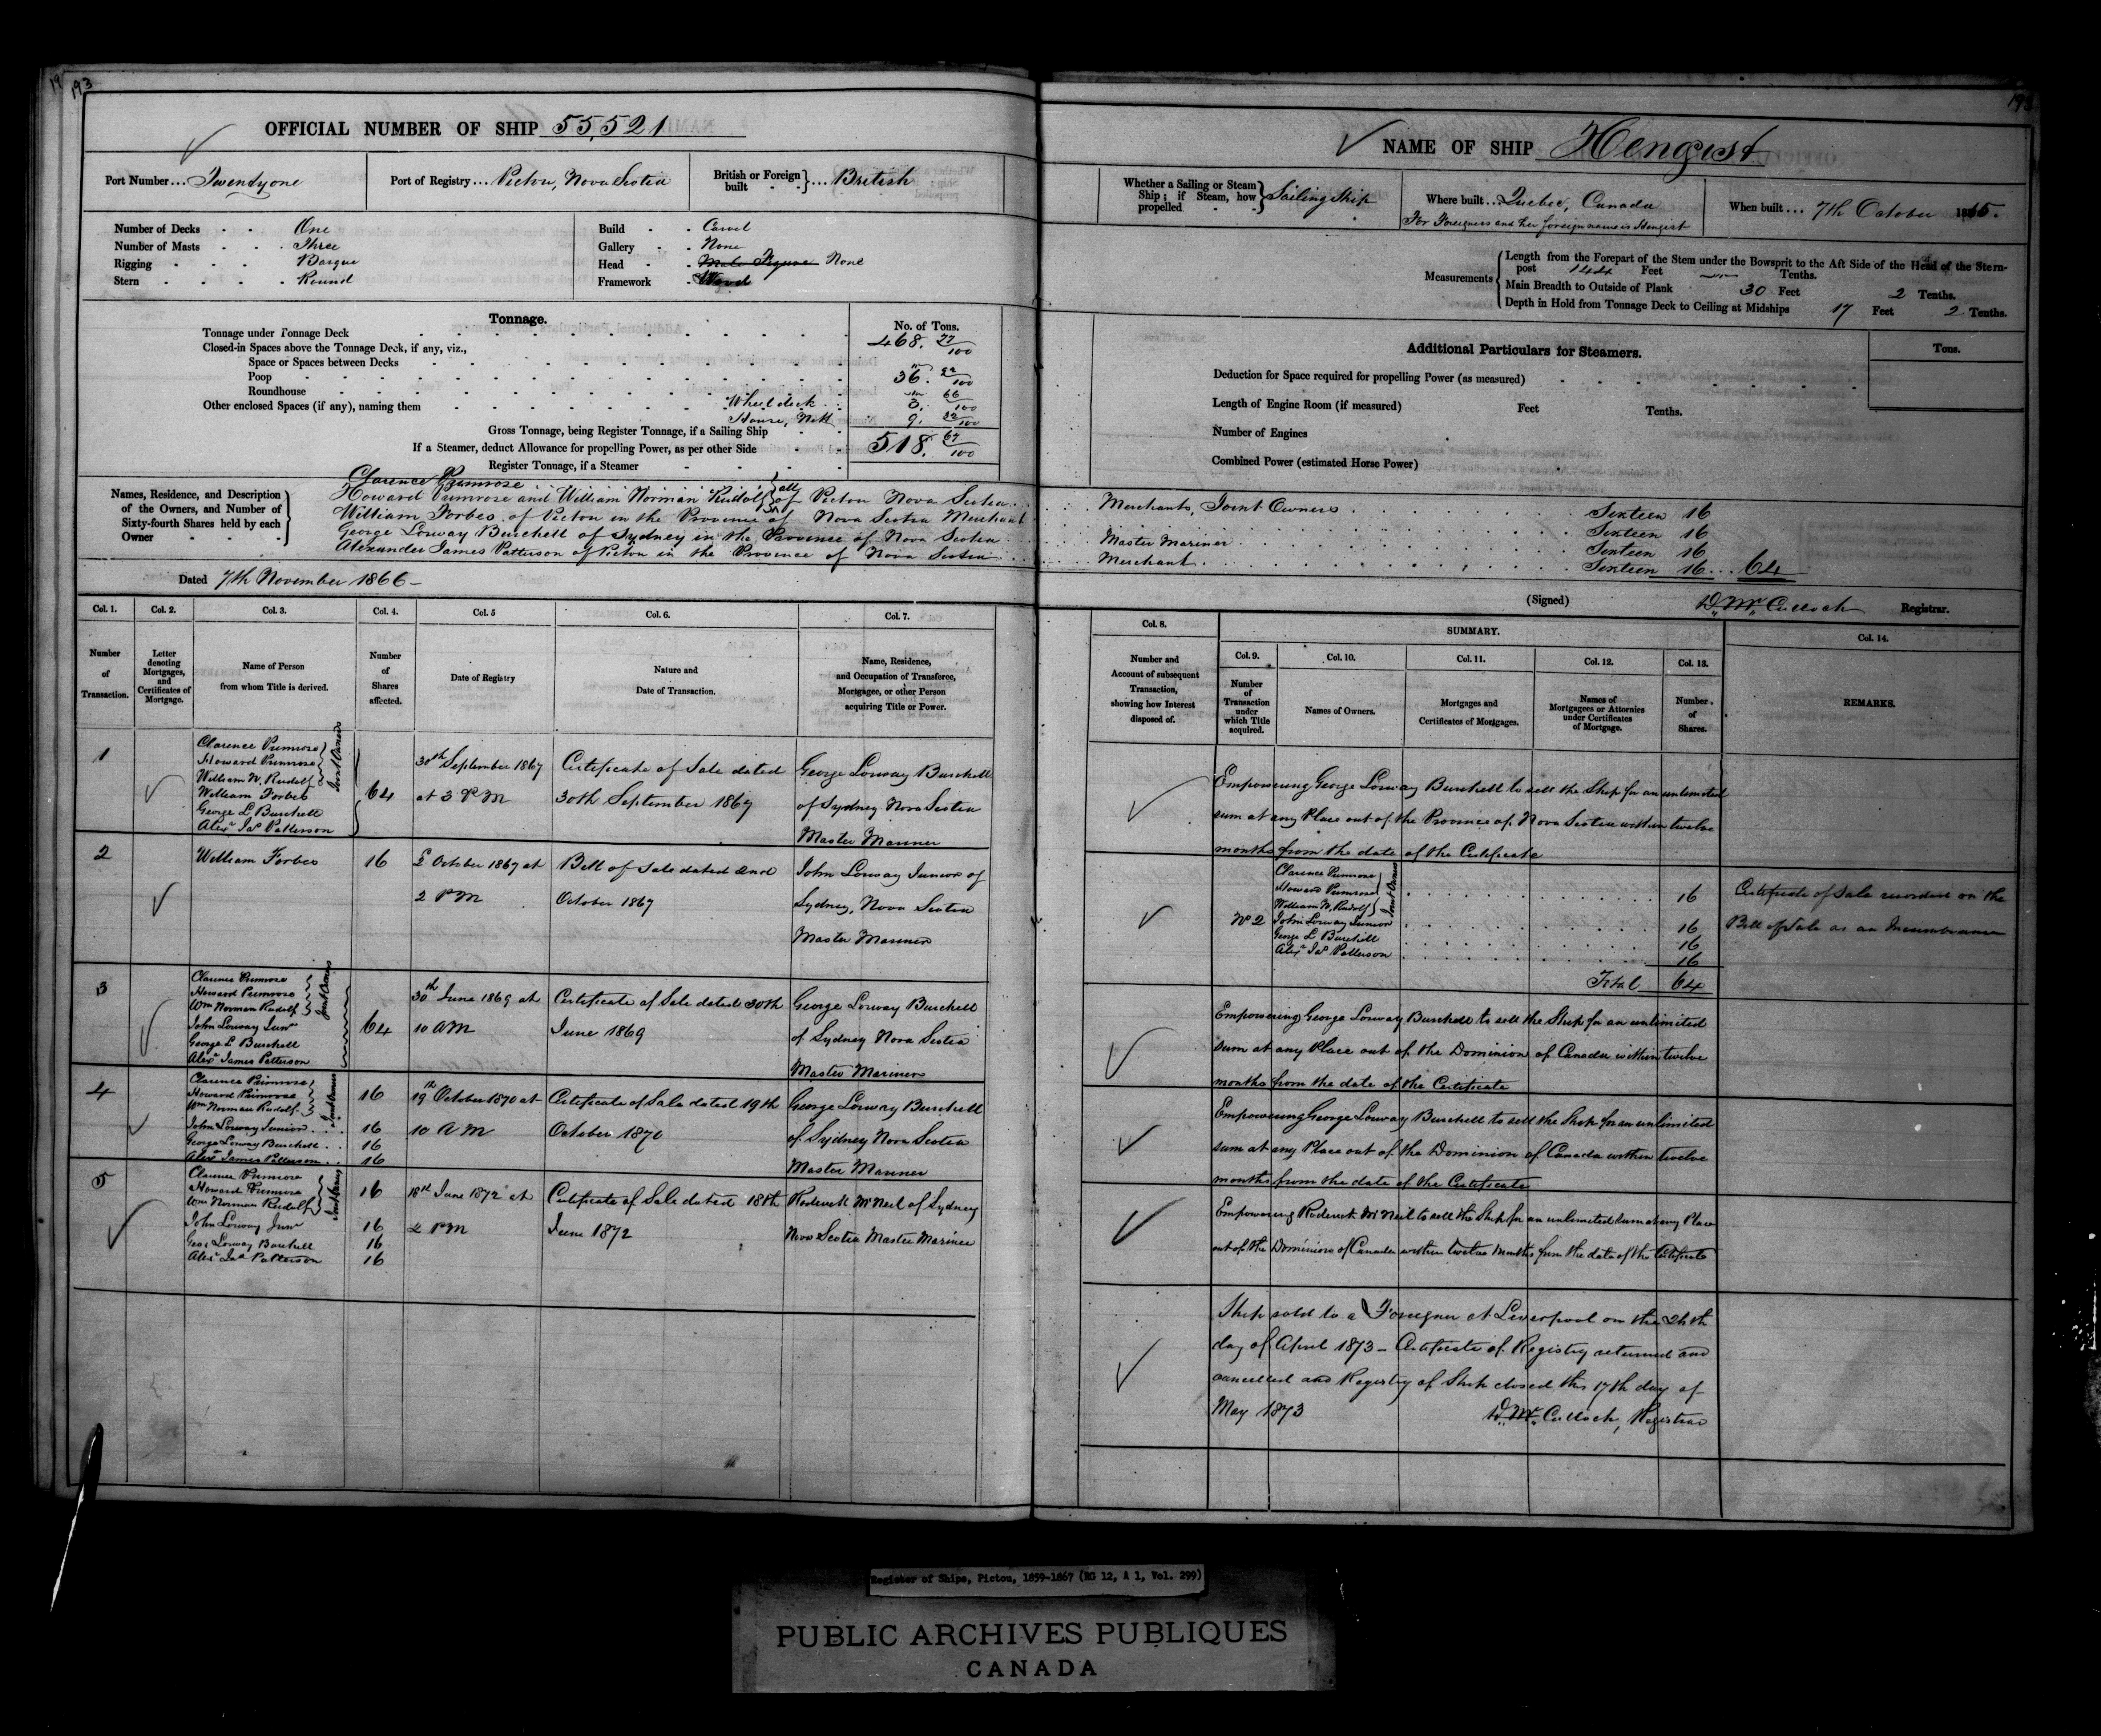 193
OFFICIAL NUMBER OF SHIP 55,521
Port Number... Twentyone
Port of Registry... Pictou, Nova Scotia
British or Foreign built } ... British
Number of Decks - - One
Number of Masts - - Three
Rigging - - Barque
Stern - - Round
Build - - Carvel
Gallery - - None
Head - - Male Figure None
Framework - Wood
Tonnage.
No. of Tons.
Tonnage under Tonnage Deck 468. 77/100
Closed-in Spaces above the Tonnage Deck, if any, viz.,
Space or Spaces between Decks
Poop 36. 22/100
Roundhouse
Other enclosed Spaces (if any), naming them Wheel deck 3. 66/100
House, 9. 22/100
Gross Tonnage, being Register Tonnage, if a Sailing Ship
If a Steamer, deduct Allowance for propelling Power, as per other Side 518. 67/100
Register Tonnage, if a Steamer
Names, Residence, and Description of the Owners, and Number of Sixty-fourth Shares held by each Owner
Clarence Primrose
Howard Primrose and William Norman Rudolf } all of Pictou Nova Scotia
William Forbes of Pictou in the Province of Nova Scotia Merchant
George Lorway Burchell of Sydney in the Province of Nova Scotia
Alexander James Patterson of Pictou in the Province of Nova Scotia
Dated 7th November 1866
Col. 1. Col. 2. Col. 3. Col. 4. Col. 5 Col. 6. Col. 7.
Number of Transaction.
Letter denoting Mortgages, and Certificates of Mortgage.
Name of Person from whom Title is derived.
Number of Shares affected.
Date of Registry
Nature and Date of Transaction.
Name, Residence, and Occupation of Transferee, Mortgagee, or other Person acquiring Title or Power.
1
Clarence Primrose
Howard Primrose
William N. Rudolf
Joint Owners
William Forbes
George L Burchell
Alexr Jas Patterson
64
30th September 1867
at 3 PM
Certificate of Sale dated
30th September 1867
George Lorway Burchell
of Sydney Nova Scotia
Master Mariner
2
William Forbes
16
2 October 1867 at
2 PM
Bill of Sale dated 2nd
October 1867
John Lorway Junior of
Sydney, Nova Scotia
Master Mariner
3
Clarence Primrose
Howard Primrose
Wm Norman Rudolf
Joint Owners
John Lorway Junr
George L Burchell
Alexr James Patterson
64
30th June 1869 at
10 AM
Certificate of Sale dated 30th
June 1869
George Lorway Burchell
of Sydney Nova Scotia
Master Mariner
4
Clarence Primrose
Howard Primrose
Wm Norman Rudolf
Joint Owners
John Lorway Junior
George Lorway Burchell
Alexr James Patterson
16
16
16
16
19th October 1870 at
10 AM
Certificate of Sale dated 19th
October 1870
George Lorway Burchell
of Sydney Nova Scotia
Master Mariner
5
Clarence Primrose
Howard Primrose
Wm Norman Rudolf
Joint Owners
John Lorway Junr
Geo. Lorway Burchell
Alexr Jas Patterson
16
16
16
16
18th June 1872 at
2 PM
Certificate of Sale dated 18th
June 1872
Roderick McNeil of Sydney
Nova Scotia Master Mariner
NAME OF SHIP Hengist
Whether a Sailing or Steam Ship; if Steam, how propelled - - } Sailing Ship
Where built... Quebec, Canada
For Foreigners and her foreign name is Hengist
When built... 7th October 1865.
Measurements
Length from the Forepart of the Stem under the Bowsprit to the Aft Side of the Head of the Stern-
post 144 Feet Tenths.
Main Breadth to Outside of Plank 30 Feet 2 Tenths.
Depth in Hold from Tonnage Deck to Ceiling at Midships 17 Feet 2 Tenths.
Additional Particulars for Steamers.
Tons.
Deduction for Space required for propelling Power (as measured)
Length of Engine Room (if measured) Feet Tenths.
Number of Engines
Combined Power (estimated Horse Power)
Merchants, Joint Owners Sixteen 16
Sixteen 16
Master Mariner Sixteen 16
Merchant Sixteen 16 ... 64
(Signed) D. McCulloch Registrar.
Col. 8.
Number and Account of subsequent Transaction, showing how Interest disposed of.
SUMMARY.
Col. 9. Col. 10. Col. 11. Col. 12. Col. 13. Col. 14.
Number of Transaction under which Title acquired.
Names of Owners.
Mortgages and Certificates of Mortgages.
Names of Mortgagees or Attornies under Certificates of Mortgage.
Number of Shares.
REMARKS.
Empowering George Lorway Burchell to sell the Ship for an unlimited
sum at any Place out of the Province of Nova Scotia within twelve
months from the date of the Certificate
No 2
Clarence Primrose
Howard Primrose
William N. Rudolf
Joint Owners
16
John Lorway Junior 16
George L Burchell 16
Alexr Jas Patterson 16
Total 64
Certificate of Sale recorded on the
Bill of Sale as an Incumbrance
Empowering George Lorway Burchell to sell the Ship for an unlimited
sum at any Place out of the Dominion of Canada within twelve
months from the date of the Certificate
Empowering George Lorway Burchell to sell the Ship for an unlimited
sum at any Place out of the Dominion of Canada within twelve
months from the date of the Certificate
Empowering Roderick McNeil to sell the Ship for an unlimited sum at any Place
out of the Dominion of Canada within twelve months from the date of the Certificate
Ship sold to a Foreigner at Liverpool on the 24th
day of April 1873 - Certificate of Registry returned and
cancelled and Registry of Ship closed this 17th day of
May 1873
D. McCulloch, Registrar
Register of Ships, Pictou, 1859-1867 (RG 12, A 1, Vol. 299)
PUBLIC ARCHIVES PUBLIQUES
CANADA